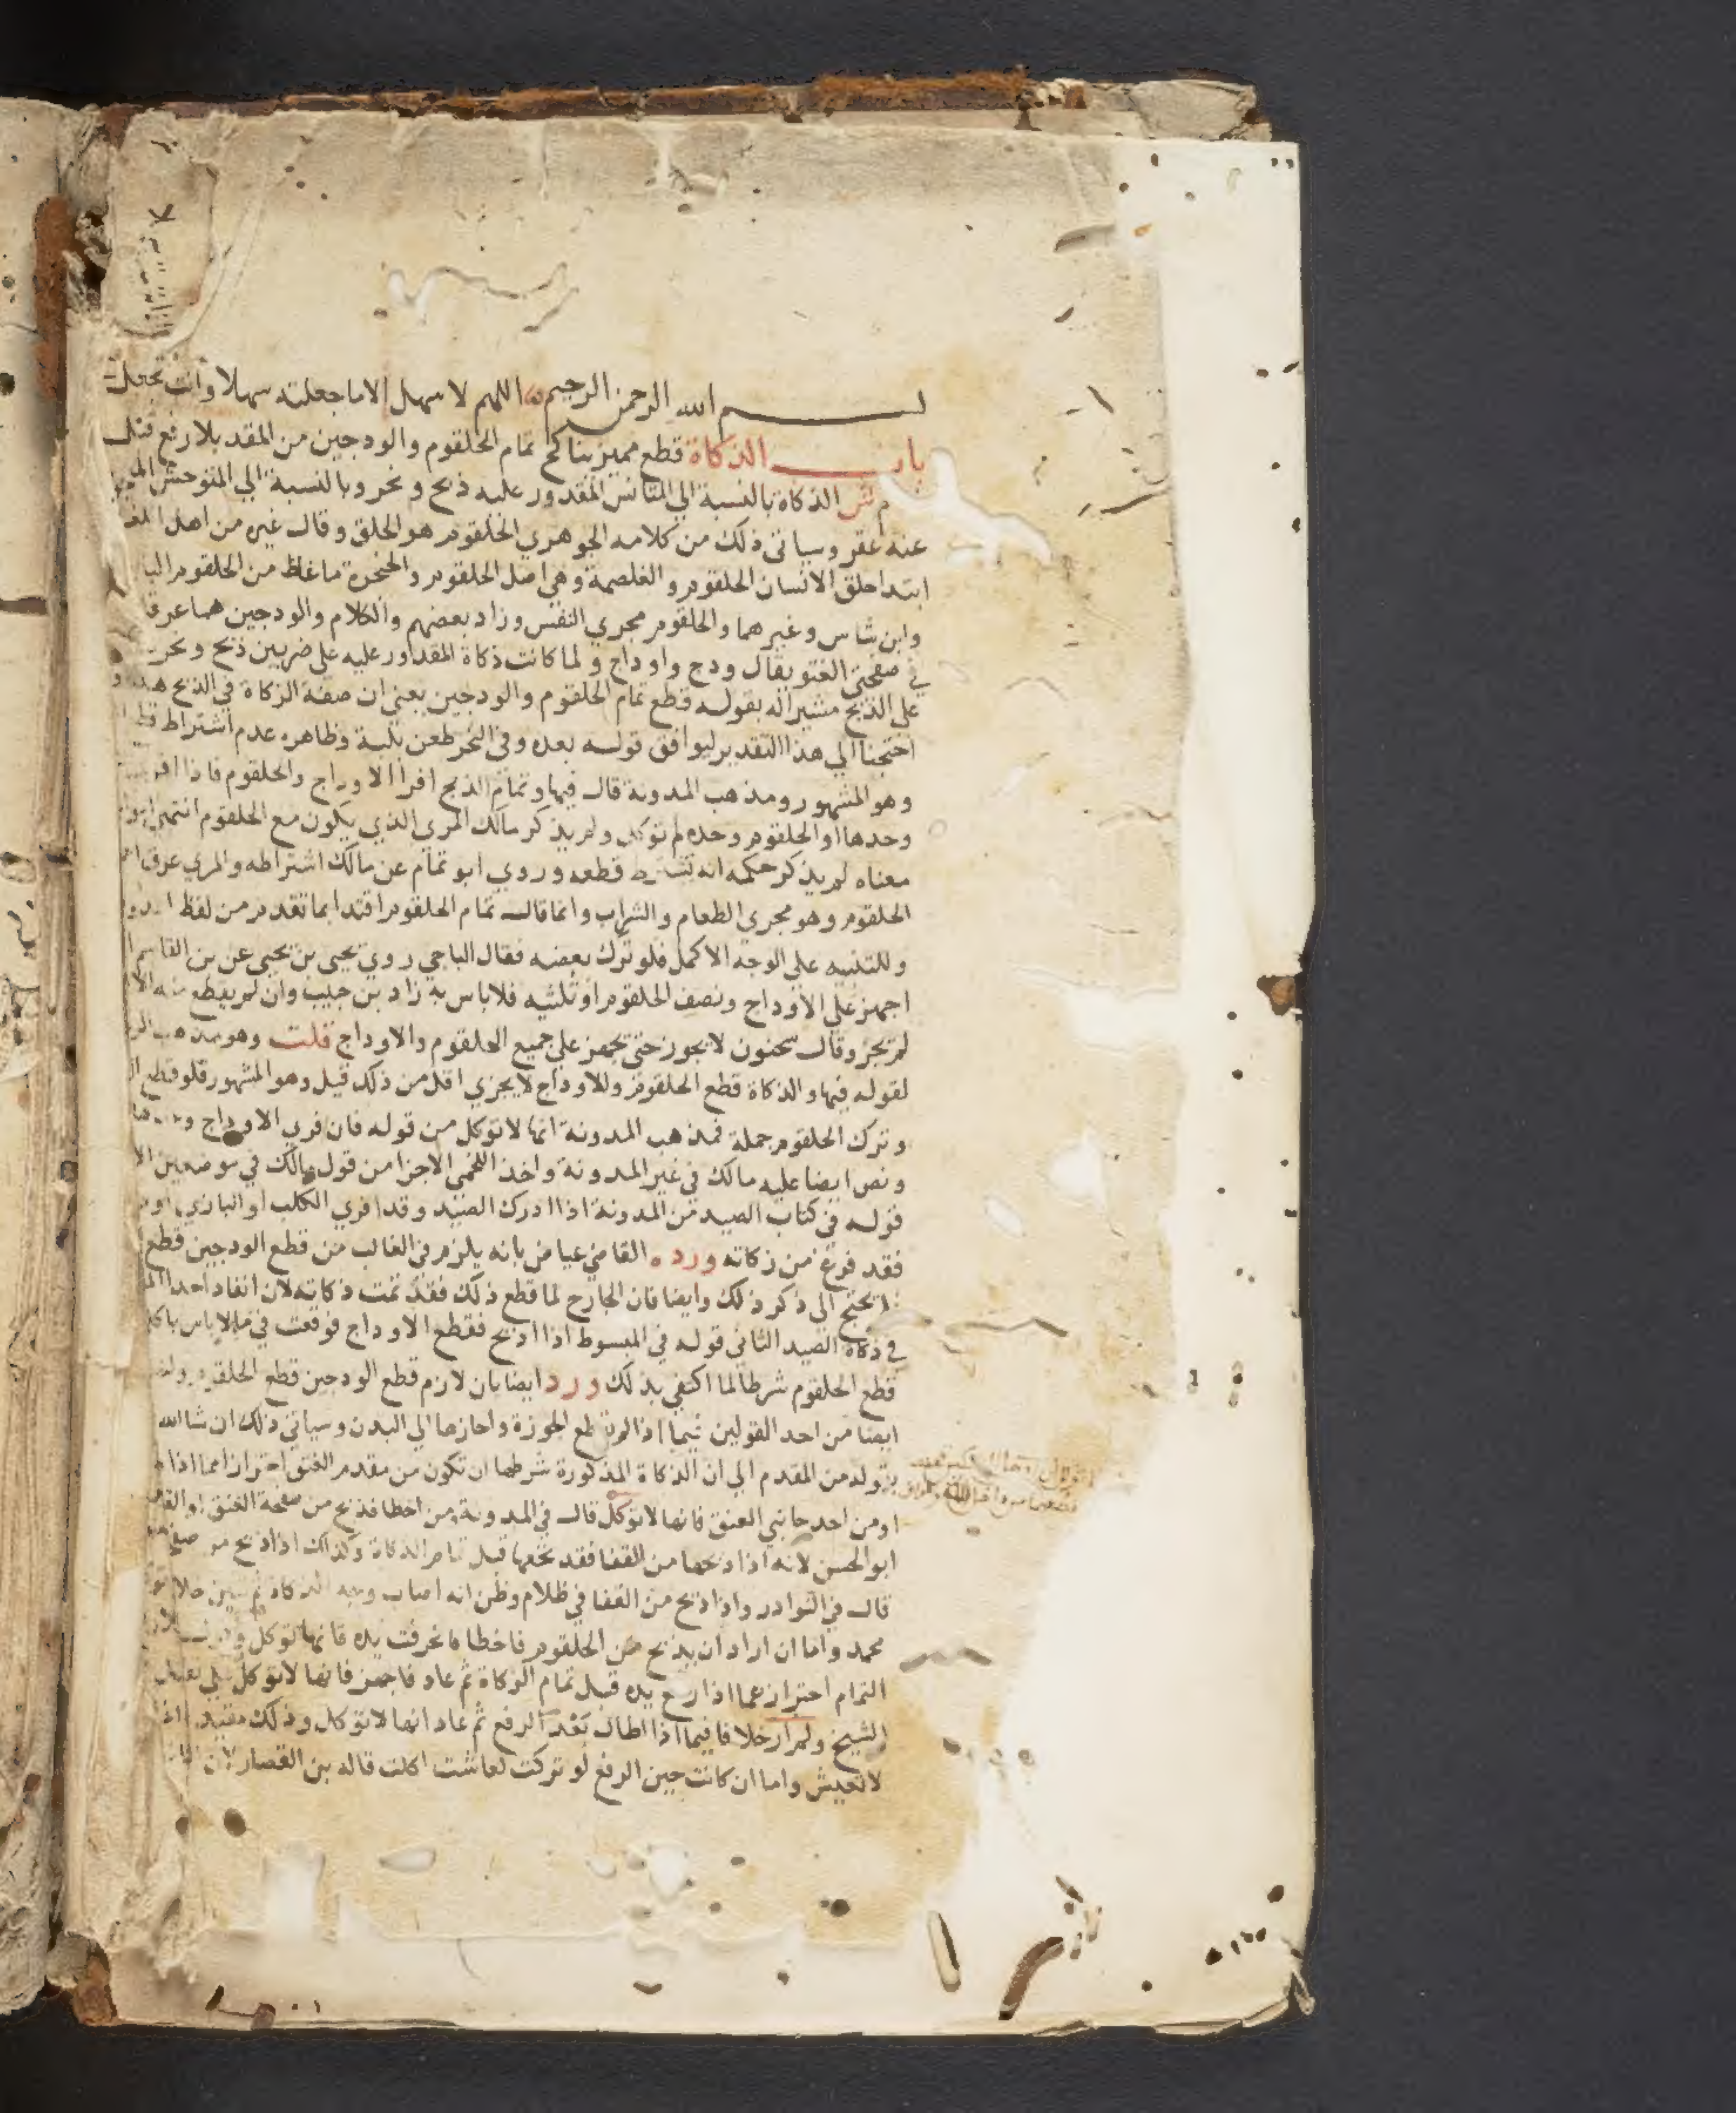 بسم الله الرحمن الرحيم اللهم لا سهل الا ما جعلته سهلا وأنت تجعل
باب الذكاة قطع مميز يناكح تمام الحلقوم والودجين من المقدم بلا رفع قبل
م ش الذكاة بالنسبة الي المتانس المقدور عليه ذبح ونحر وبالنسبة الي المتوحش المعجوز
عنه عقر وسياتي ذلك من كلامه الجوهري الحلقوم هو الحلق وقال غيره من اهل اللغة
ابتدا حلق الانسان الحلقوم والغلصمة وهي اصل الحلقوم والحنجرة ما غلظ من الحلقوم
وابن شاس وغيرهما والحلقوم مجري النفس وزاد بعضهم والكلام والودجين هما عرقا
في صفحتي العنق يقال ودج واوداج ولما كانت ذكاة المقدور عليه علي ضربين ذبح ونحر
علي الذبح مشيرا له بقوله قطع تمام الحلقوم والودجين يعني ان صفة الزكاة في الذبح هذه و
احتجنا الي هذا التقدير ليوافق قوله بعده وفي النحر طعن بلبة وظاهره عدم اشتراط قطع
وهو المشهور ومذهب المدونة قال فيها وتمام الذبح افرا الاوداج والحلقوم فاذا افري
وحدها او الحلقوم وحده لم توكل ولم يذكر مالك المري الذي يكون مع الحلقوم انتهي
معناه لم يذكر حكمه انه يشترط قطعه وروي ابو تمام عن مالك اشتراطه والمري عرق
الحلقوم وهو مجري الطعام والشراب وانما قال تمام الحلقوم اقتدا بما تقدم من لفظ
وللتنبيه علي الوجه الاكمل فلو ترك بعضه فقال الباجي روي يحيي بن يحيي عن بن القاسم
اجهز علي الاوداج ونصف الحلقوم او ثلثيه فلا باس به زاد بن حبيب وان لم يقطع منه الا
لم تجز وقال سحنون لا يجوز حتي يجهز علي جميع الحلقوم والاوداج قلت وهو مذهب
لقوله فيها والذكاة قطع الحلقوم وللاوداج لا يجزي اقل من ذلك قيل وهو المشهور فلو قطع
وترك الحلقوم جملة فمذهب المدونة انها لا توكل من قوله فان فري الاوداج وحدها
ونص ايضا عليه مالك في غير المدونة واخذ اللخمي الاجزا من قول مالك في موضعين
قوله في كتاب الصيد من المدونة اذا ادرك الصيد وقد افري الكلب او البازي
فقد فرغ من زكاته ورده القاضي عياض بانه يلزم في الغالب من قطع الودجين قطع
يحتج الي ذكر ذلك وايضا فان الجارح لما قطع ذلك فقد تمت ذكاته لان انفاد احدا
في ذكاة الصيد الثاني قوله في المبسوط اذا اذبح فقطع الاوداج فوقعت في ما لا باس باكل
قطع الحلقوم شرطا لما اكتفي بذلك ورد ايضا بان لازم قطع الودجين قطع الحلقوم
ايضا من احد القولين فيما اذا لم يقطع الجوزة واحازها الي البدن وسياتي ذلك ان شا الله
بقوله من المقدم الي ان الذكاة المذكورة شرطها ان تكون من مقدم العنق احترازا مما اذا
او من احد جانبي العنق فانها لا توكل قال في المدونة ومن اخطا فذبح من صفحة العنق او القفا
ابو الحسن لانه اذا ذبحها من القفا فقد نخعها قبل تمام الذكاة وكذلك اذا ذبح من
قال في النوادر واذا ذبح من القفا في ظلام وظن انه اصاب وجه الذكاة ثم تبين
محمد واما ان اراد ان يذبح من الحلقوم فاخطا فانحرفت يده فانها توكل
التمام احتراز عما اذا رفع يده قبل تمام الزكاة ثم عاد فاجهز فانها لا توكل
الشيخ ولم ار خلافا فيما اذا اطال بعد الرفع ثم عاد انها لا توكل وذلك مقيد
لا تعيش واما ان كانت حين الرفع لو تركت لعاشت اكلت قاله بن القصار لان